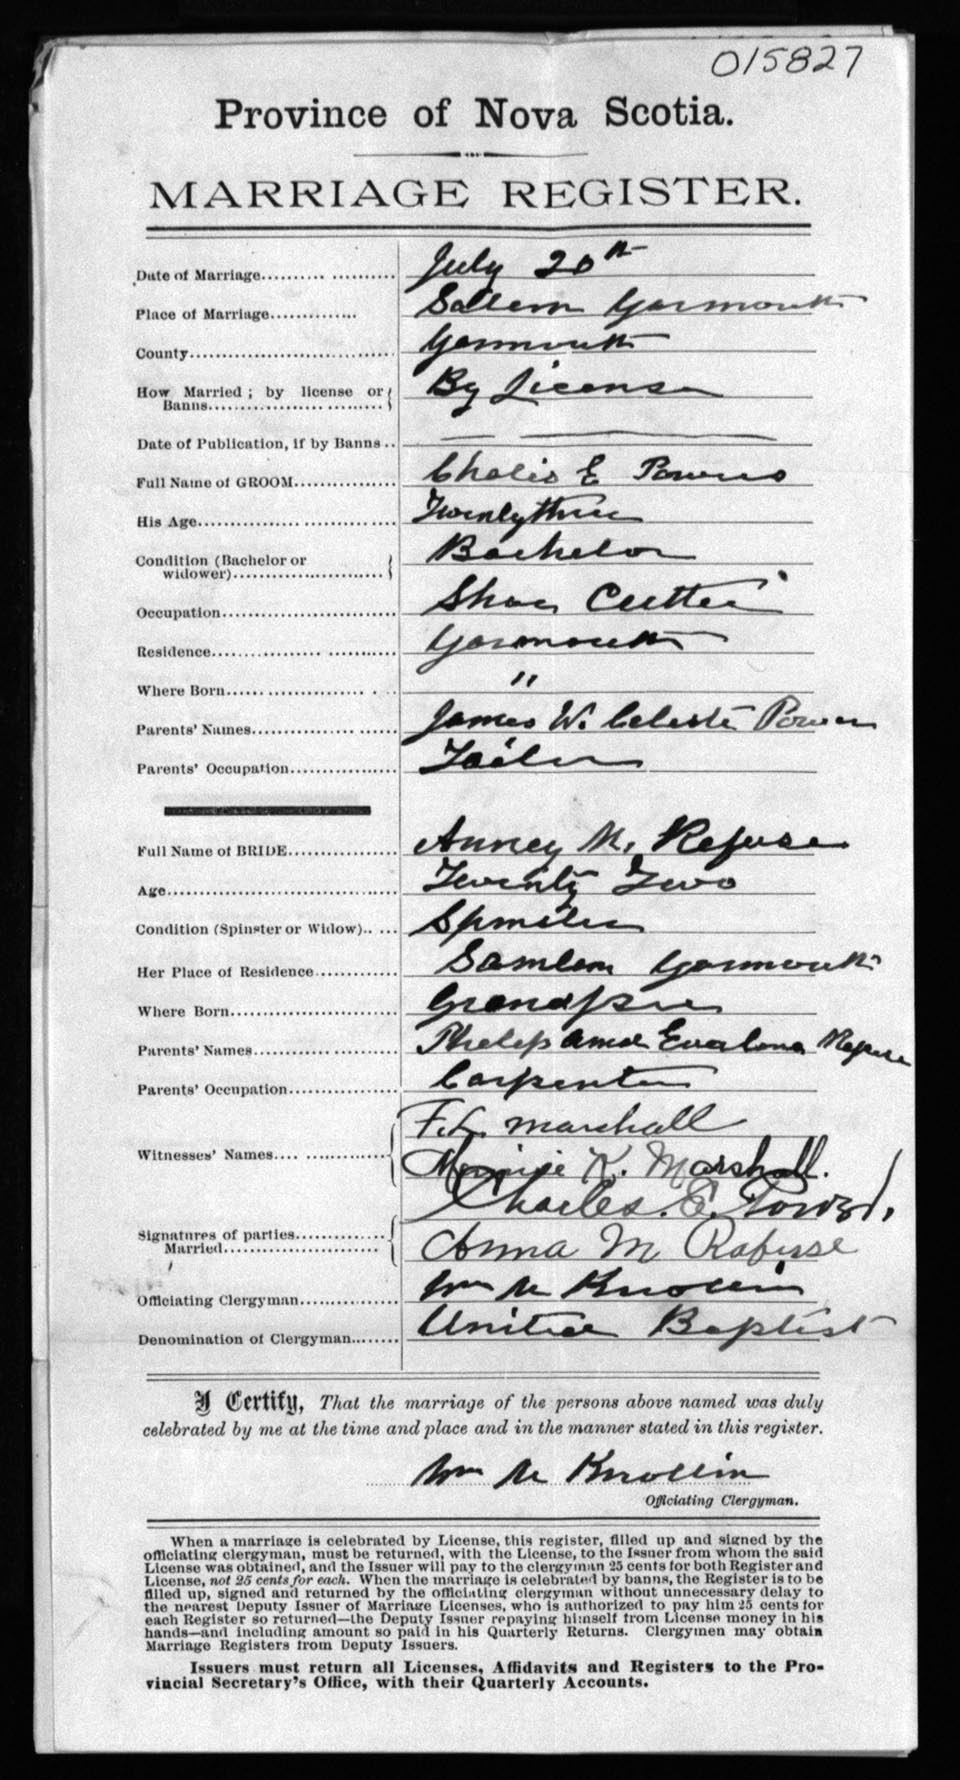 015827
Province of Nova Scotia.
MARRIAGE REGISTER.
Date of Marriage.......... .......... July 20th
Place of Marriage............. Sallem Yarmouth
County................................ Yarmouth
How Married ; by license or Banns................... .......... By License
Date of Publication, if by Banns ..
Full Name of GROOM................ Chalis E Powers
His Age............... .............. Twenty three
Condition (Bachelor or widower).......................... Bachelor
Occupation........................... Shoe Cutter
Residence............... ........... Yarmouth
Where Born...... ............... . ... "
Parents' Names.................. ...... James W. Celeste Power
Parents' Occupation................. Tailer
Full Name of BRIDE................. Anney M. Refuse
Age................................... Twenty Two
Condition (Spinster or Widow).. ... Spinster
Her Place of Residence............. Yarmouth
Where Born........................... Grandpre
Parents' Names............... ....... Phelip and Evalena Refuse
Parents' Occupation................. Carpenter
Witnesses' Names.... ............. F. L. Marshall
Minnie K. Marshall.
Signatures of parties Married........................ Charles. E. Powers,
Anna M Rafuse
Officiating Clergyman............... Wm M Knollin
Denomination of Clergyman........ United Baptist
I Certify, That the marriage of the persons above named was duly
celebrated by me at the time and place and in the manner stated in this register.
Wm M Knollin
Officiating Clergyman.
When a marriage is celebrated by License, this register, filled up and signed by the
officiating clergyman, must be returned, with the License, to the Issuer from whom the said
License was obtained, and the Issuer will pay to the clergyman 25 cents for both Register and
License, not 25 cents for each. When the marriage is celebrated by banns, the Register is to be
filled up, signed and returned by the officiating clergyman without unnecessary delay to
the nearest Deputy Issuer of Marriage Licenses, who is authorized to pay him 25 cents for
each Register so returned—the Deputy Issuer repaying himself from License money in his
hands—and including amount so paid in his Quarterly Returns. Clergymen may obtain
Marriage Registers from Deputy Issuers.
Issuers must return all Licenses, Affidavits and Registers to the Pro-
vincial Secretary's Office, with their Quarterly Accounts.